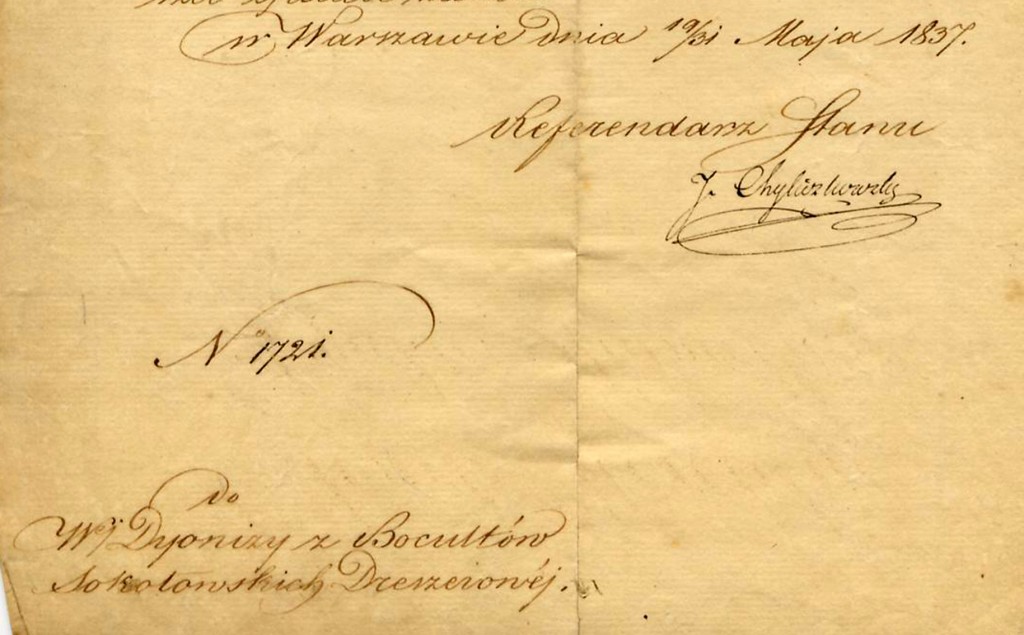 w Warszawie dnia 19/31 Maja 1837.
Referendarz Stanu
J. Chyliczkowski
No 1721.
do
WJ Dyonizy z Bocultów
Sokołowskich Dzeszeronéj.